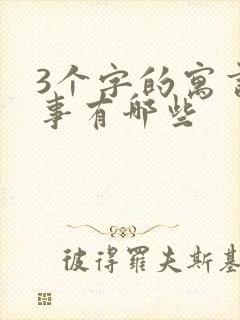 3个字的寓言
事有哪些
彼得罗夫斯基